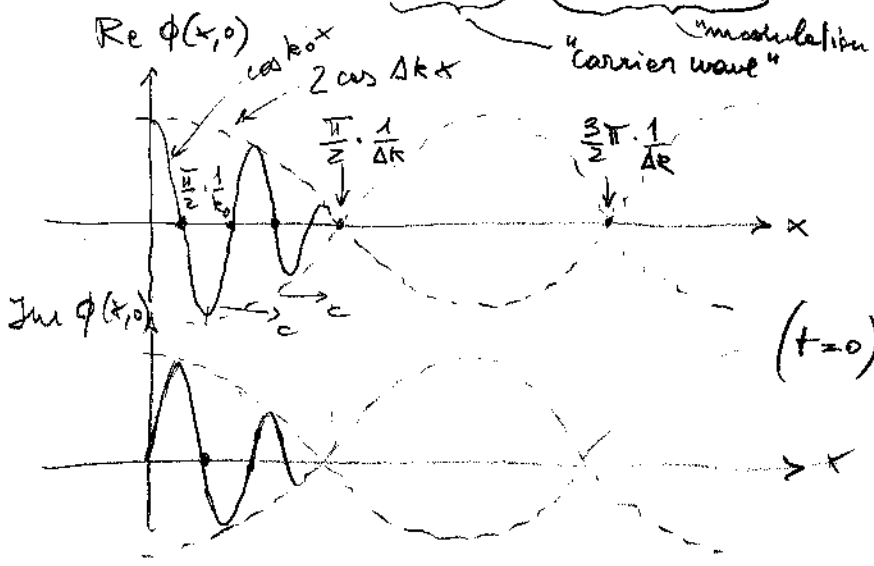 "modulation
"carrier wave"
Re ϕ(x,0)
cos k₀x
2 cos Δk x
π/2 · 1/k₀
π/2 · 1/Δk
3/2 π · 1/Δk
x
c
c
Im ϕ(x,0)
(t=0)
x